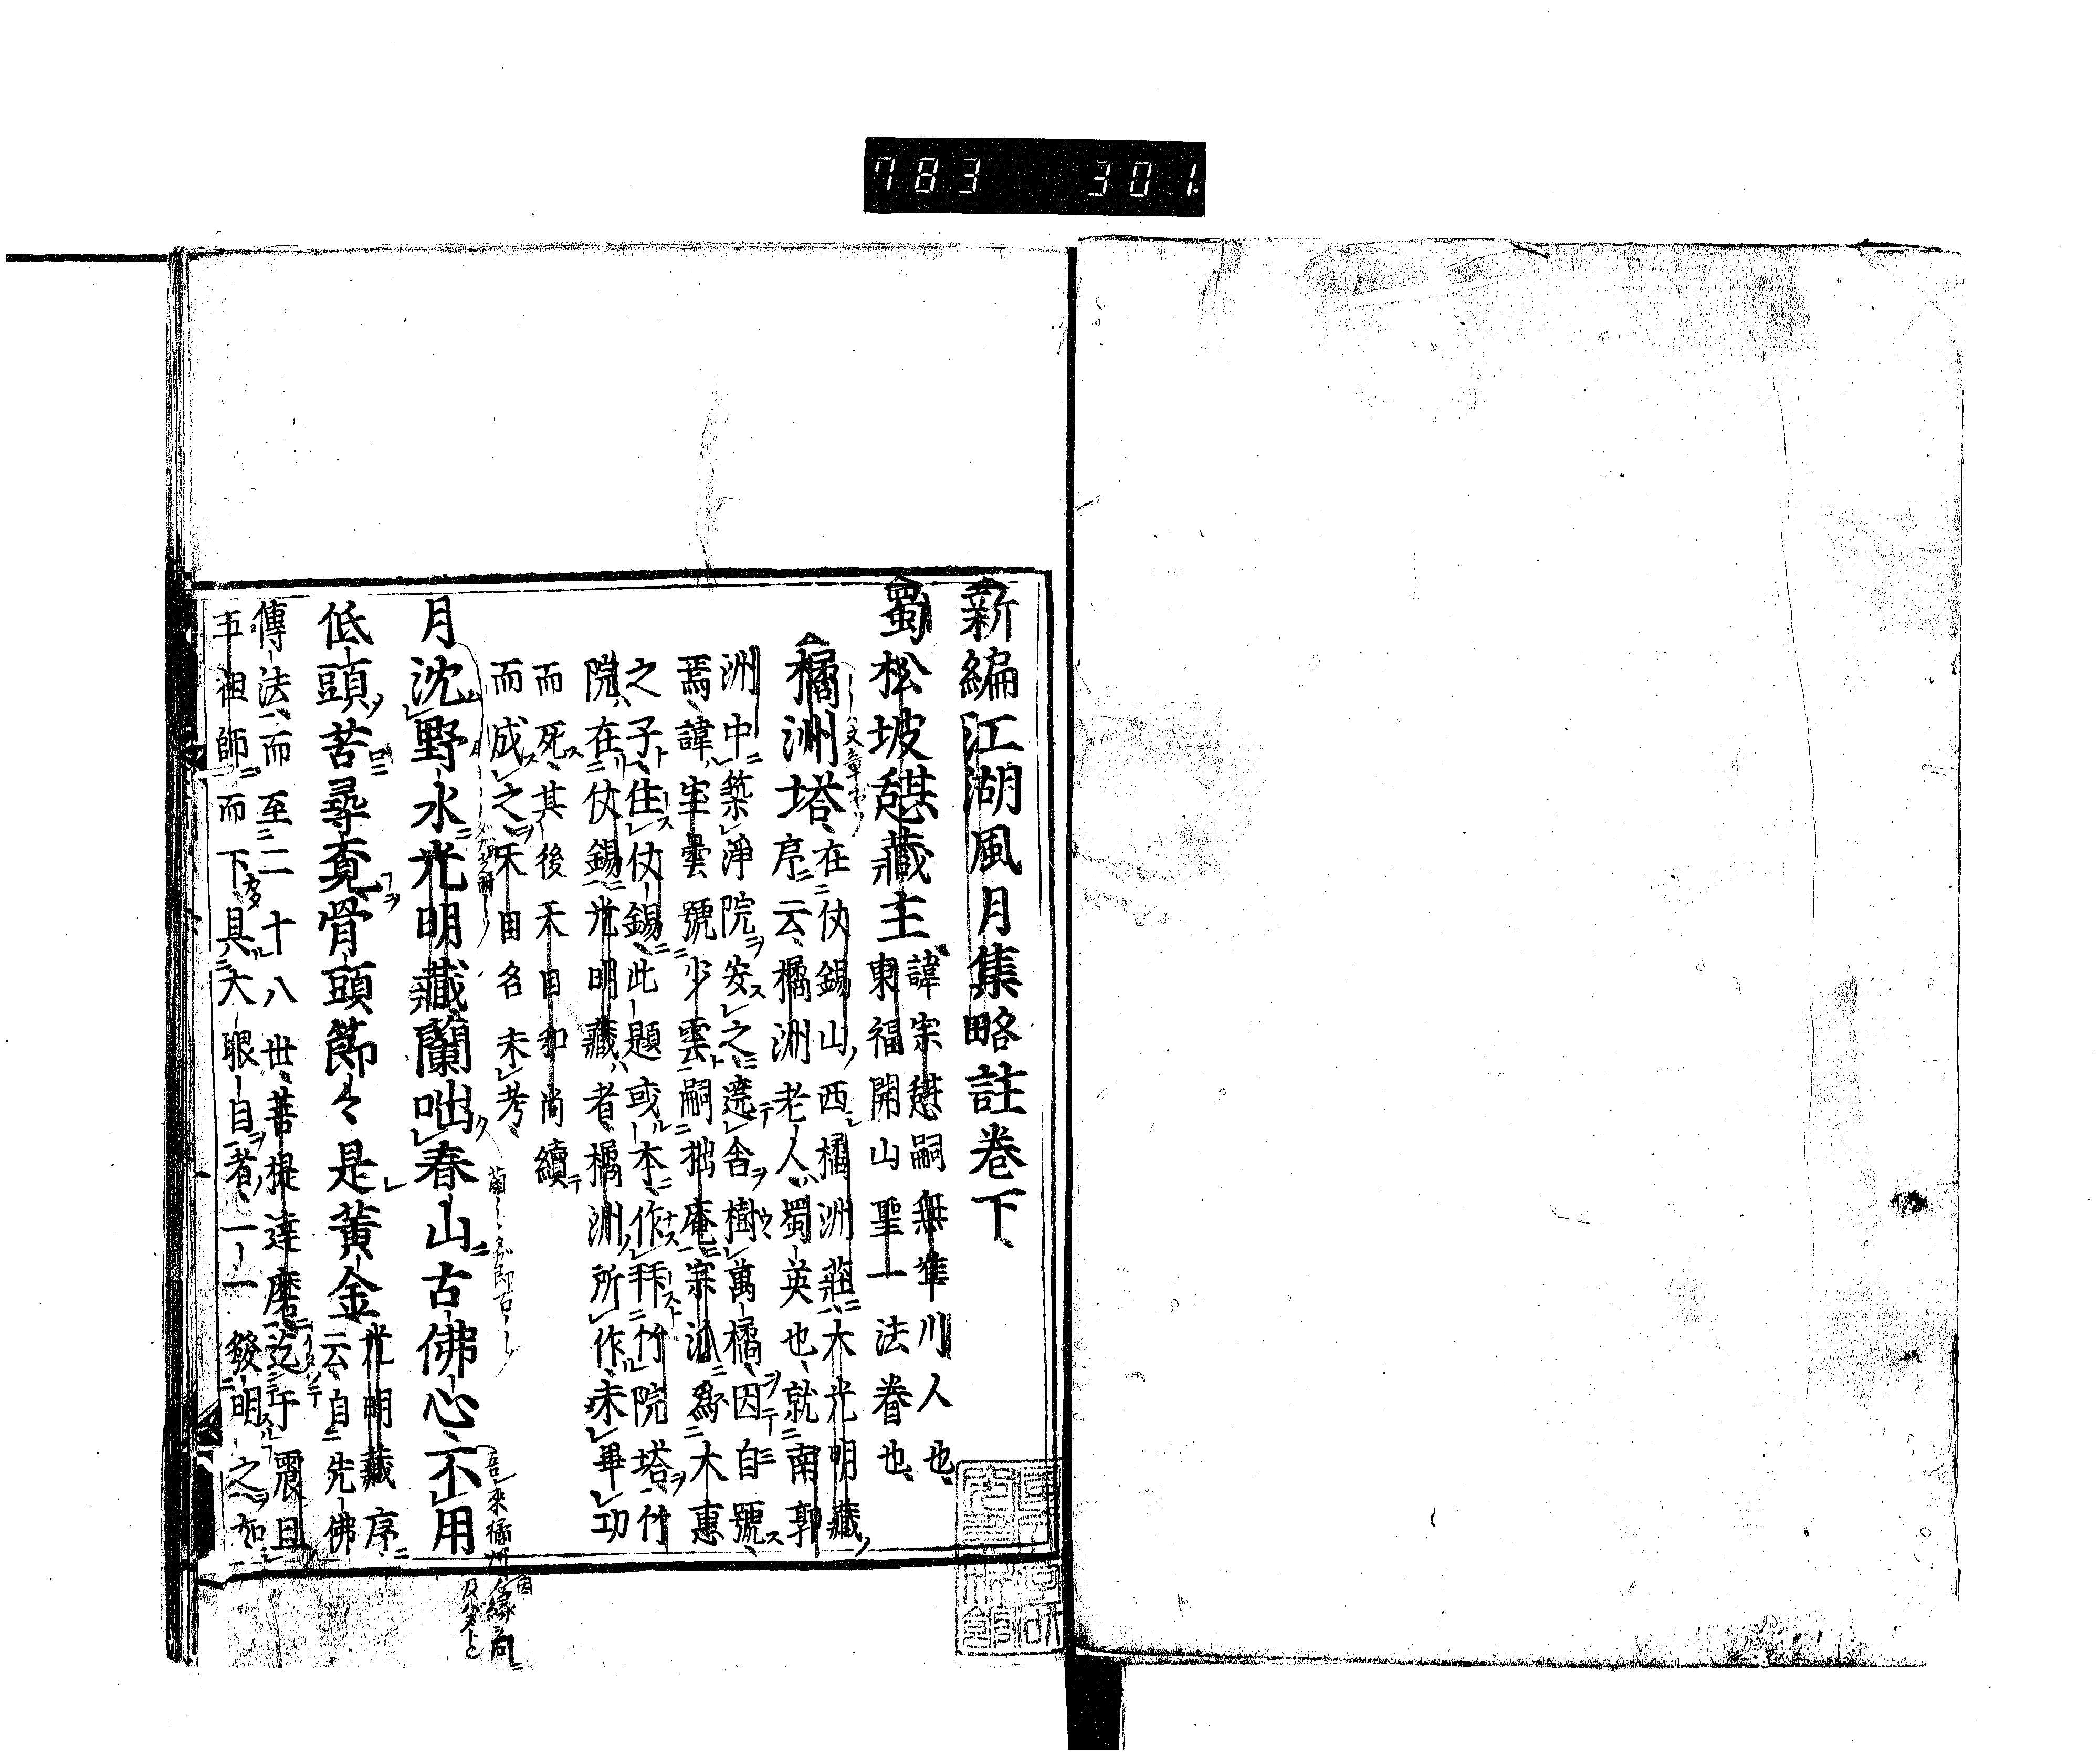 783 301
新編江湖風月集略註卷下
蜀松坡憇藏主
諱宗憇嗣無準川人也
東福開山聖一法眷也
橘洲塔
在仗錫山西橘洲莊大光明藏
序云橘洲老人蜀英也就南郭
洲中築淨院安之遶舍樹萬橘因自號
焉諱宝曇號少雲嗣拙庵寂滅爲大惠
之子住仗錫此題或本作拜竹院塔竹
院在仗錫光明藏者橘洲所作未畢功
而死其後天目和尚續
而成之天目名未考
月沈野水光明藏蘭咄春山古佛心不用
低頭苦尋覓骨頭節々是黃金
光明藏序
云自先佛
傳法而至二十八世菩提達磨迄于震旦
五祖師而下具大眼目者一一發明之如